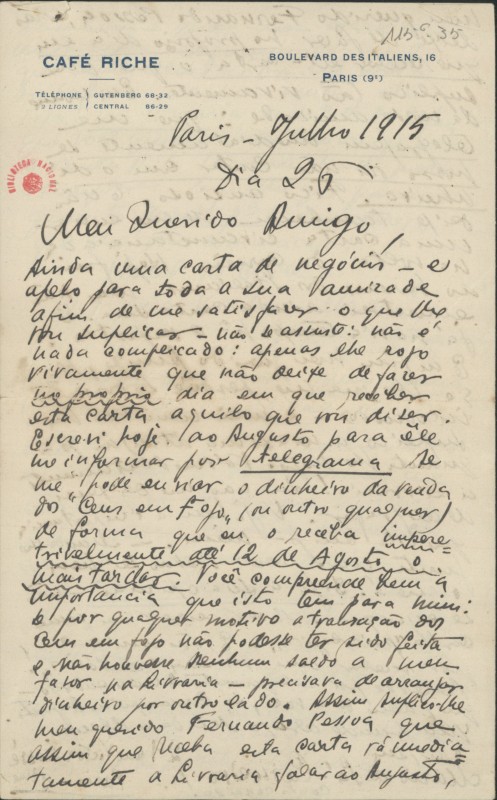 115⁵-35
CAFÉ RICHE
BOULEVARD DES ITALIENS, 16
PARIS (9ᵉ)
TÉLÉPHONE GUTENBERG 66-32
2 LIGNES CENTRAL 86-29
BIBLIOTECA NACIONAL
Paris – Julho 1915
Dia 25
Meu Querido Amigo,
Ainda uma carta de negócios – e
apelo para toda a sua amizade
afim de me satisfazer o que lhe
vou suplicar – não se assuste: não é
nada complicado: apenas lhe rogo
vivamente que não deixe de fazer
no proprio dia em que receber
esta carta aquilo que vou dizer.
Escrevi hoje ao Augusto para êle
me informar por telegrama se
me pode enviar o dinheiro da venda
dos "Ceus em fogo" (ou outro qualquer)
de forma que eu o receba impere-
trivelmente até 12 de Agosto o
mais tardar. Você compreende bem a
importancia que isto tem para mim:
Se por qualquer motivo a transação dos
Ceus em fogo não podesse ter sido feita
e não houvesse nenhum saldo a meu
favor na Livraria – precisava de arranjar
dinheiro por outro lado. Assim suplico-lhe
meu querido Fernando Pessoa que
assim que receba esta carta vá imedia-
tamente a Livraria falar ao Augusto,